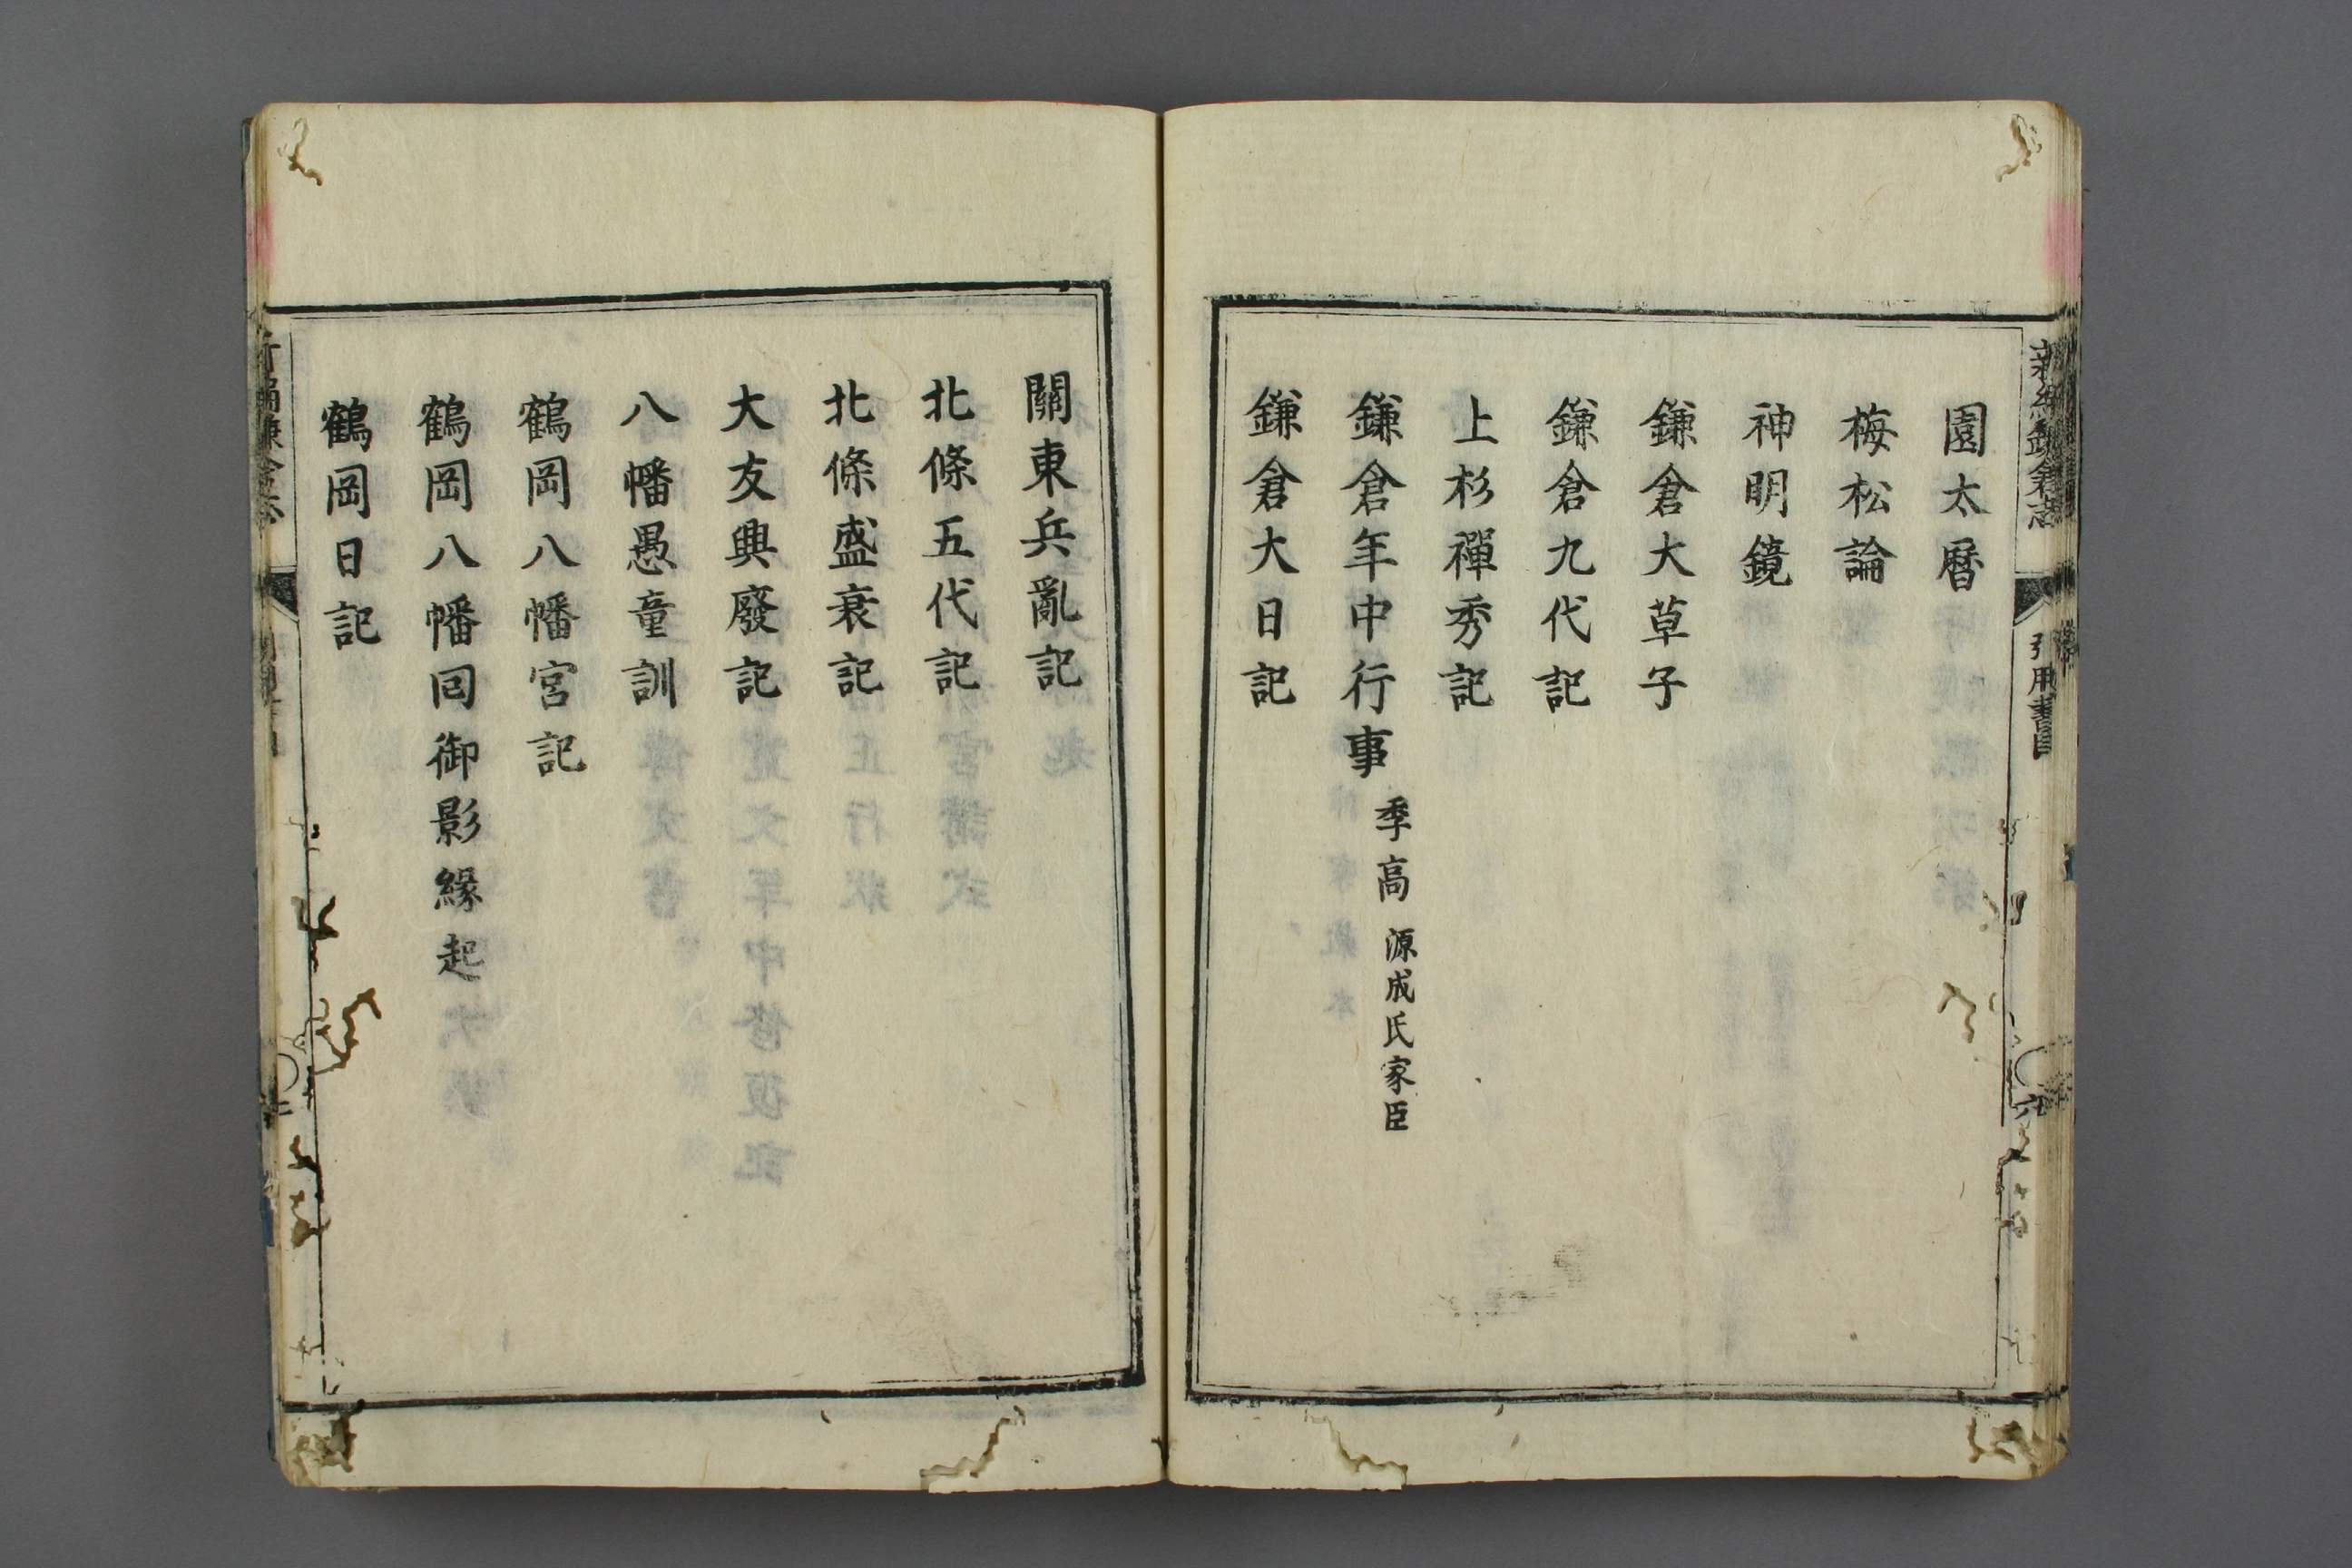 新編鎌倉志
引用書目
園太暦
梅松論
神明鏡
鎌倉大草子
鎌倉九代記
上杉禪秀記
鎌倉年中行事 季高 源成氏家臣
鎌倉大日記
關東兵亂記
北條五代記
北條盛衰記
大友興廢記
八幡愚童訓
鶴岡八幡宮記
鶴岡八幡回御影緣起
鶴岡日記